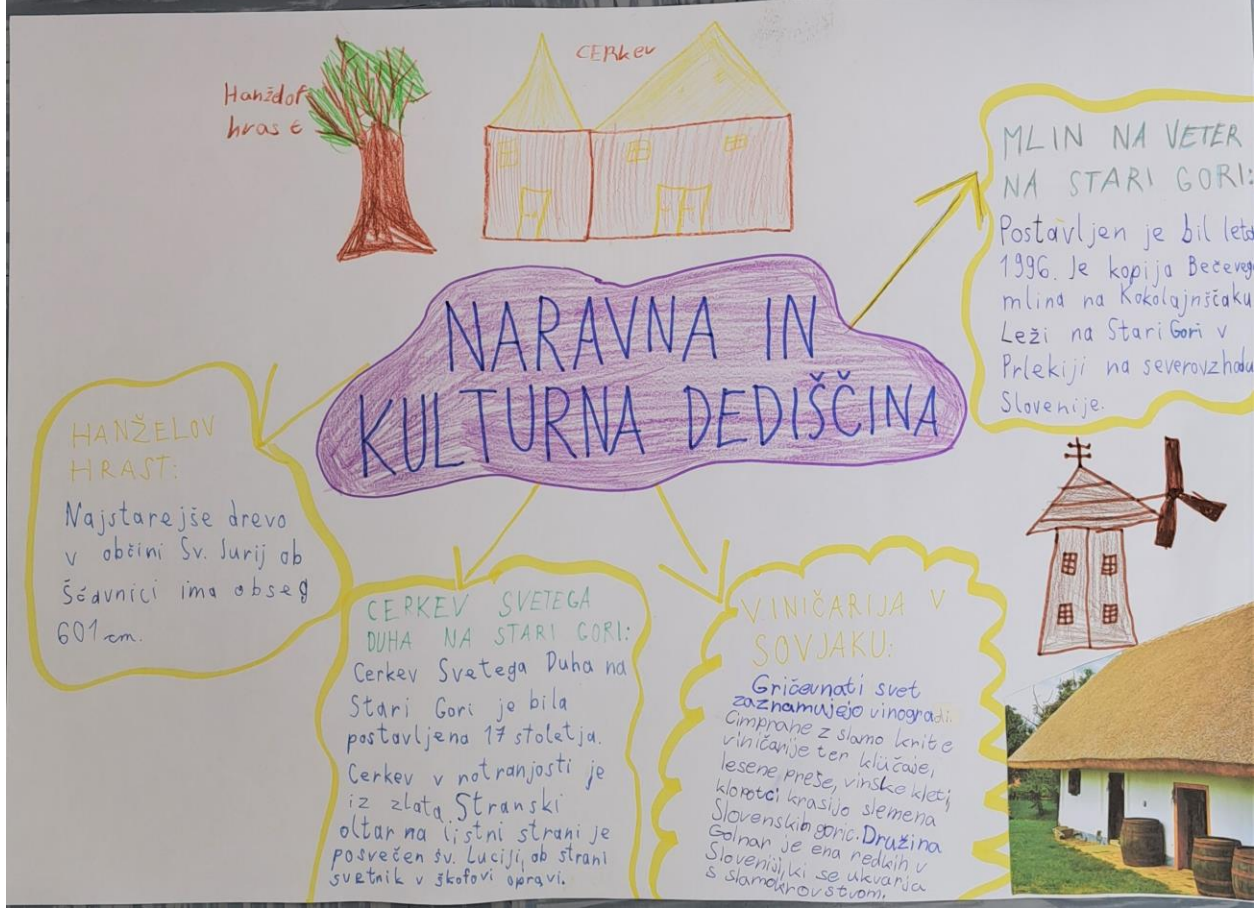 Hanždof
hrast
CERkev
MLIN NA VETER
NA STARI GORI:
Postavljen je bil leto
1996. Je kopija Bečevega
mlina na Kokolajnščaku
Leži na Stari Gori v
Prlekiji na severovzhodu
Slovenije.
NARAVNA IN
KULTURNA DEDIŠČINA
HANŽELOV
HRAST:
Najstarejše drevo
v občini Sv. Jurij ob
Ščavnici ima obseg
601 cm.
CERKEV SVETEGA
DUHA NA STARI GORI:
Cerkev Svetega Duha na
Stari Gori je bila
postavljena 17 stoletja.
Cerkev v notranjosti je
iz zlata. Stranski
oltar na listni strani je
posvečen sv. Luciji, ob strani
svetnik v škofovi opravi.
VINIČARIJA V
SOVJAKU:
Gričevnati svet
zaznamujejo vinogradi.
Cimprane z slamo krite
viničarije ter ključaje,
lesene preše, vinske kleti,
klopotci krasijo slemena
Slovenskih goric. Družina
Golnar je ena redkih v
Sloveniji, ki se ukvarja
s slamokrovstvom.